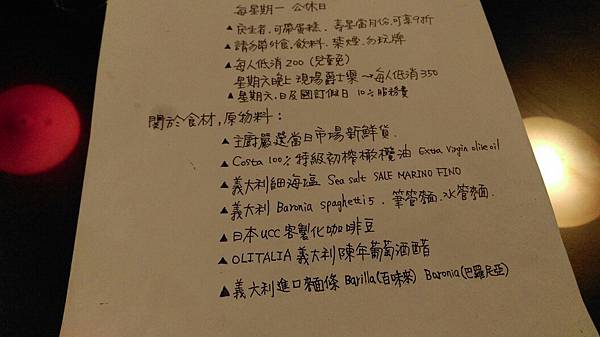 每星期一 公休日
▲慶生者.可帶蛋糕. 壽星當月份.可享9折
▲請勿帶外食,飲料.禁煙.勿玩牌
▲每人低消200 (兒童免)
星期六晚上 現場爵士樂→每人低消350
▲星期六.日及國訂假日 10%服務費
關於食材,原物料:
▲主廚嚴選當日市場新鮮貨.
▲Costa 100% 特級初榨橄欖油 Extra Vagin olive oil
▲義大利細海塩 Sea salt SALE MARINO FINO
▲義大利 Baronia spaghetti 5 . 筆管麵.水管麵.
▲日本UCC客製化咖啡豆
▲OLITALIA 義大利陳年葡萄酒醋
▲義大利進口麵條 Barilla(百味來) Baronia(巴羅尼亞)